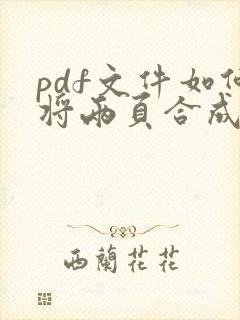 pdf文件如何
将兩頁合成
西蘭花花